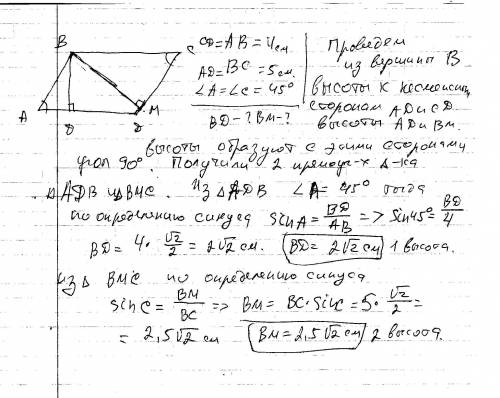 B C
A D D M
CD = AB = 4 см.
AD = BC = 5 см.
∠A = ∠C = 45°
BD - ? BM - ?
Проведем
из вершины B
высоты к несмежным
сторонам AD и CD.
высоты AD и BM.
высоты образуют с этими сторонами
угол 90°. Получили 2 прямоуг-х Δ-ка
ΔADB и ΔBMC. Из ΔADB ∠A = 45° тогда
по определению синуса sin A = BD/AB => sin 45° = BD/4
BD = 4 · √2/2 = 2√2 см. BD = 2√2 см 1 высота.
Из Δ BMC по определению синуса
sin C = BM/BC => BM = BC · sin C = 5 · √2/2 =
= 2,5√2 см BM = 2,5√2 см 2 высота.